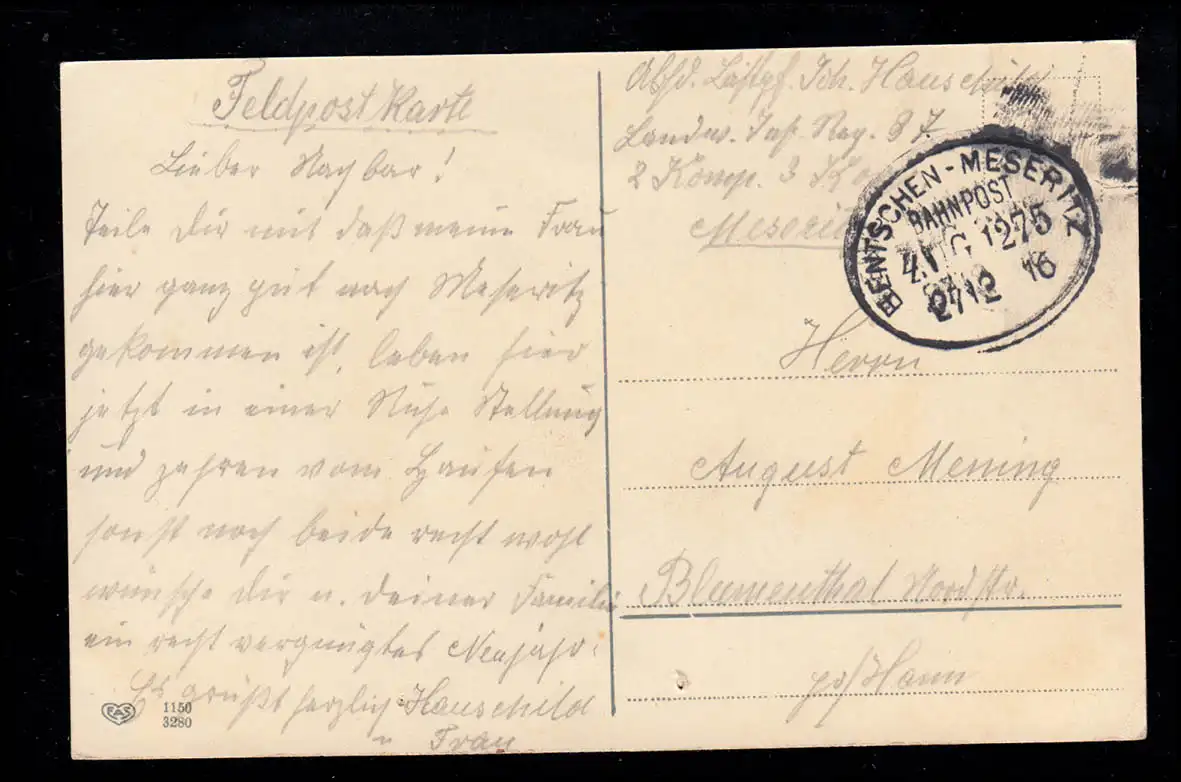 Feldpost Karte
Lieber Nachbar!
Teile Dir mit daß meine Frau
hier ganz gut nach Meseritz
gekommen ist, leben hier
jetzt in einer Ruhe Stellung
und zehren vom Haufen
sonst noch beide recht wohl
wünsche Dir u. Deiner Familie
ein recht vergnügtes Neujahr.
Es grüßt herzlich Hauschild
u Frau
EAS
1150
3280
Absd. Joh. Hauschild
Landw. Inf. Reg. 37
2 Komp. 3
Meseritz
BENTSCHEN-MESERITZ
BAHNPOST
ZUG 1275
2712 16
Herrn
August Mening
Blumenthal Nordstr.
Hann